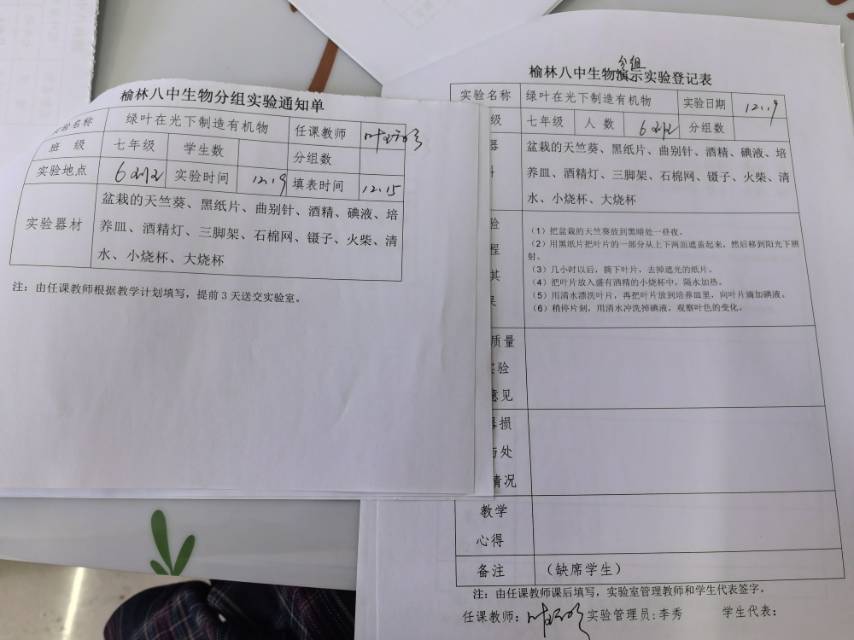 榆林八中生物分组实验通知单
验名称 绿叶在光下制造有机物 任课教师
班 级 七年级 学生数 分组数
实验地点 实验时间 12.19 填表时间 12.15
实验器材 盆栽的天竺葵、黑纸片、曲别针、酒精、碘液、培
养皿、酒精灯、三脚架、石棉网、镊子、火柴、清
水、小烧杯、大烧杯
注：由任课教师根据教学计划填写，提前3天送交实验室。
分组
榆林八中生物演示实验登记表
实验名称 绿叶在光下制造有机物 实验日期 12.19
级 七年级 人 数 分组数
器 盆栽的天竺葵、黑纸片、曲别针、酒精、碘液、培
养皿、酒精灯、三脚架、石棉网、镊子、火柴、清
水、小烧杯、大烧杯
验
程
其
（1）把盆栽的天竺葵放到黑暗处一昼夜。
（2）用黑纸片把叶片的一部分从上下两面遮盖起来，然后移到阳光下照
射。
（3）几小时以后，摘下叶片，去掉遮光的纸片。
（4）把叶片放入盛有酒精的小烧杯中，隔水加热。
（5）用清水漂洗叶片，再把叶片放到培养皿里，向叶片滴加碘液。
（6）稍停片刻，用清水冲洗掉碘液，观察叶色的变化。
质量
验
意见
损
与处
情况
教学
心得
备注 （缺席学生）
注：由任课教师课后填写，实验室管理教师和学生代表签字。
任课教师： 实验管理员：李秀 学生代表：